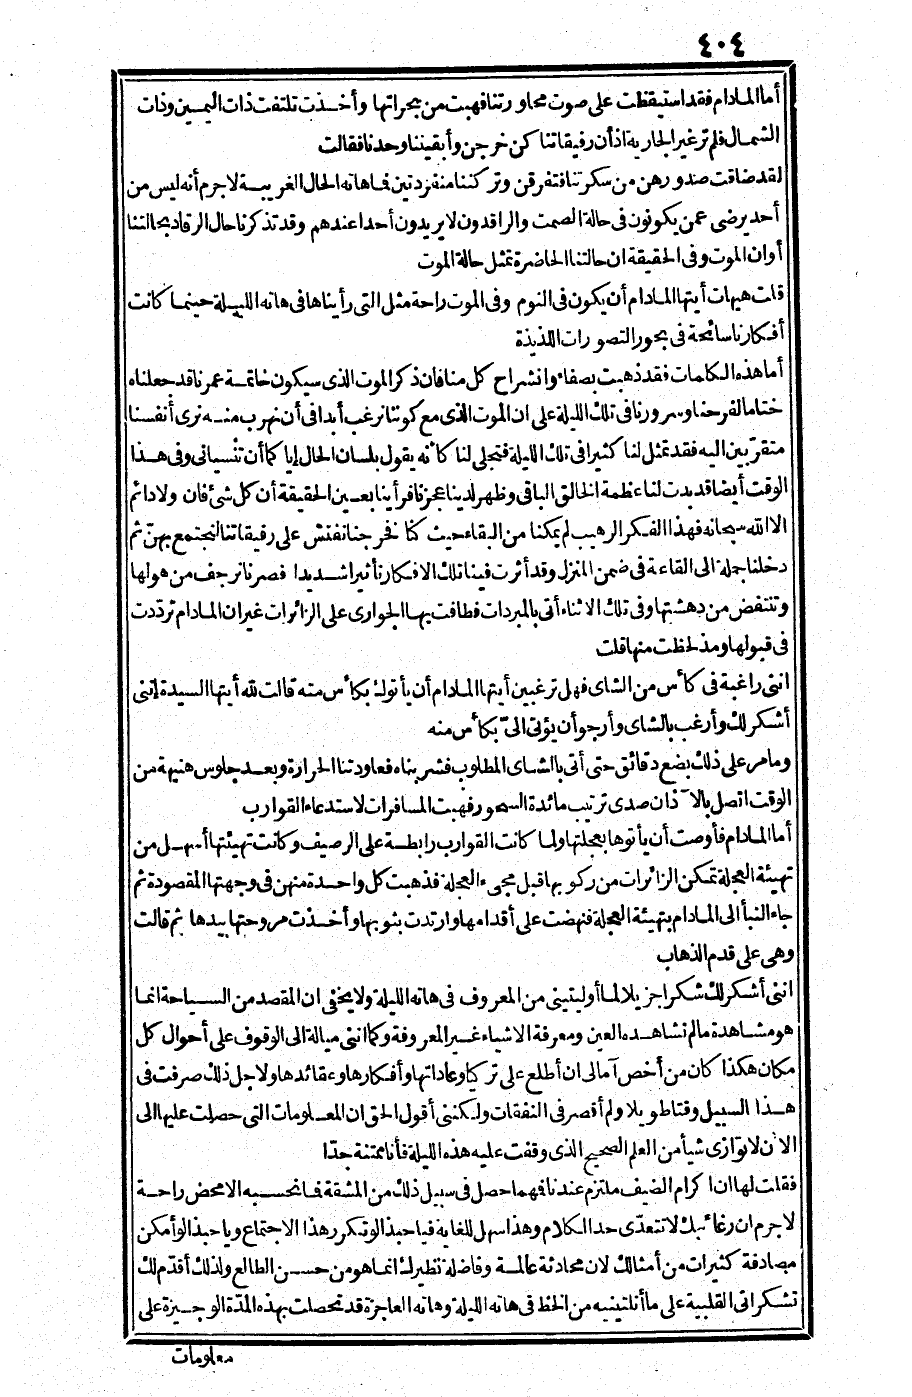 ٤٠٤
أما المادام فقد استيقظت على صوت محاورتنا فهبت من هجراتها وأخذت تلتفت ذات اليمين وذات
الشمال فلم تر غير الجارية اذ أن رفيقاتنا كن خرجن وأبقيننا وحدنا فقالت
لقد ضاقت صدورهن من سكرتنا فتفرقن وتركننا منفردتين فما هاته الحال الغريبة لا جرم أنه ليس من
أحد يرضى عمن يكونون فى حالة الصمت والراقدون لا يريدون أحدا عندهم وقد تذكرنا حال الرقاد بحالتنا
أوان الموت وفى الحقيقة ان حالتنا الحاضرة تمثل حالة الموت
قلت هيهات أيتها المادام أن يكون فى النوم وفى الموت راحة مثل التى رأيناها فى هاته الليلة حينما كانت
أفكارنا سائحة فى بحور التصورات اللذيذة
أما هذه الكلمات فقد ذهبت بصفاء وانشراح كل منا فان ذكر الموت الذى سيكون خاتمة عمرنا قد جعلناه
ختاما لفرحنا وسرورنا فى تلك الليلة على ان الموت الذى مع كوننا نرغب أبدا فى أن نهرب منه نرى أنفسنا
متقرّبين اليه فقد تمثل لنا كثيرا فى تلك الليلة فتجلى لنا كأنه يقول بلسان الحال إيا كما أن تنسيانى وفى هذا
الوقت أيضا قد بدت لنا عظمة الخالق الباقى وظهر لدينا عجزنا فرأينا بعين الحقيقة أن كل شئ فان ولا دائم
الا الله سبحانه فهذا الفكر الرهيب لم يمكنا من البقاء حيث كنا فخرجنا نفتش على رفيقاتنا لنجتمع بهنّ ثم
دخلنا جملة الى القاعة فى ضمن المنزل وقد أثرت فينا تلك الافكار تأثيرا شديدا فصرنا نرتجف من هولها
وننتفض من دهشتها وفى تلك الاثناء أتى بالمبردات فطافت بها الجوارى على الزائرات غير ان المادام تردّدت
فى قبولها ومذ لحظت منها قلت
اننى راغبة فى كأس من الشاى فهل ترغبين أيتها المادام أن يأتوك بكأس منه قالت لله أيتها السيدة إننى
أشكرك وأرغب بالشاى وأرجو أن يؤتى الىّ بكأس منه
وما مر على ذلك بضع دقائق حتى أتى بالشاى المطلوب فشربناه فعاودتنا الحرارة وبعد جلوس هنيهة من
الوقت اتصل بالآذان صدى ترتيب مائدة السحور فهبت المسافرات لاستدعاء القوارب
أما المادام فأوصت أن يأتوها بعجلتها ولما كانت القوارب رابطة على الرصيف وكانت تهيئتها أسهل من
تهيئة العجلة تمكن الزائرات من ركوبها قبل مجىء العجلة فذهبت كل واحدة منهن فى وجهتها المقصودة ثم
جاء النبأ الى المادام بتهيئة العجلة فنهضت على أقدامها وارتدت بثوبها وأخذت مروحتها بيدها ثم قالت
وهى على قدم الذهاب
اننى أشكرك شكرا جزيلا لما أوليتينى من المعروف فى هاته الليلة ولا يخفى ان المقصد من السياحة انما
هو مشاهدة ما لم تشاهده العين ومعرفة الاشياء غير المعروفة وكما اننى ميالة الى الوقوف على أحوال كل
مكان هكذا كان من أخص آمالى ان أطلع على تركيا وعاداتها وأفكارها وعقائدها ولاجل ذلك صرفت فى
هذا السبيل وقتا طويلا ولم أقصر فى النفقات ولكننى أقول الحق ان المعلومات التى حصلت عليها الى
الآن لا توازى شيأ من العلم الصحيح الذى وقفت عليه هذه الليلة فأنا ممتنة جدّا
فقلت لها ان اكرام الضيف ملتزم عندنا فهما حصل فى سبيل ذلك من المشقة فما نحسبه الا محض راحة
لا جرم ان رغائبك لا تتعدّى حد الكلام وهذا سهل للغاية فيا حبذا لو تكرر هذا الاجتماع ويا حبذا لو أمكن
مصادفة كثيرات من أمثالك لان محادثة عالمة وفاضلة نظيرك انما هو من حسن الطالع ولذلك أقدّم لك
تشكراتى القلبية على ما أنلتينيه من الحظ فى هاته الليلة وهاته العاجزة قد تحصلت بهذه المدّة الوجيزة على
معلومات